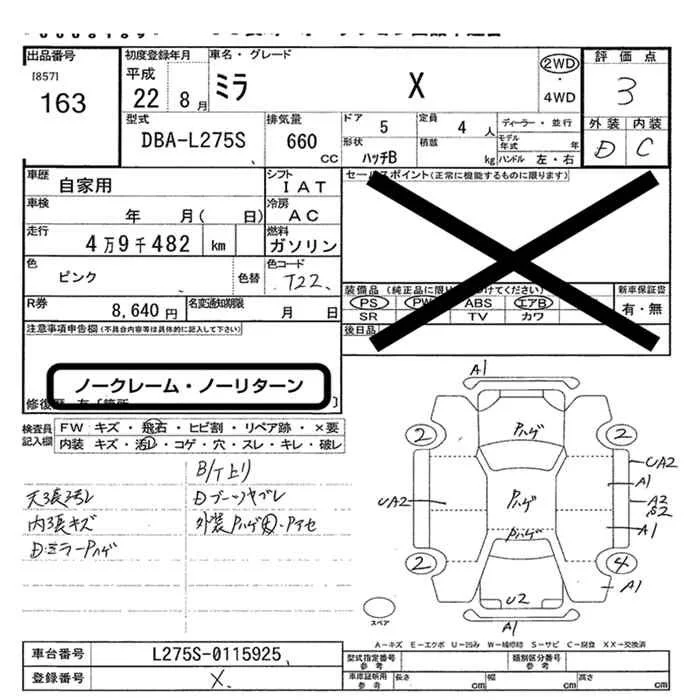 出品番号
[857]
163
初度登録年月
平成
22 8月
車名・グレード
ミラ X
2WD
・
4WD
評価点
3
外装 内装
D C
型式
DBA-L275S
排気量
660 CC
ドア 5
定員 4人
ディーラー・並行
形状
ハッチB
積載 kg
モデル年式 年
ハンドル 左・右
車歴
自家用
シフト
IAT
車検 年 月( 日)
冷房
AC
走行
4万9千482 km
燃料
ガソリン
色
ピンク
色替
色コード
T22
R券
8,640円
名変通知期限 月 日
セールスポイント(正常に機能するものに限ります)
PS PW ABS エアB
SR TV カワ
後日品
新車保証書
有・無
注意事項申告欄(不具合内容等は具体的に記入して下さい)
ノークレーム・ノーリターン
検査員記入欄
FW キズ・飛石・ヒビ割・リペア跡・×要
内装 キズ・汚レ・コゲ・穴・スレ・キレ・破レ
B/T上り
天張汚レ
Dブーツヤブレ
内張キズ
D.ミラーPハゲ
A1
2 2
Pハゲ
UA2
A1
UA2
Pハゲ
A2
S2
A1
Pハゲ
2 4
A1
U2
A1
スペア
A-キズ E-エクボ U-凹み W-補修跡 S-サビ C-腐食 XX-交換済
車台番号
L275S-0115925
型式指定番号
参考
類別区分番号
参考
登録番号
X
車庫証明用
参考
長さ cm
幅 cm
高さ cm